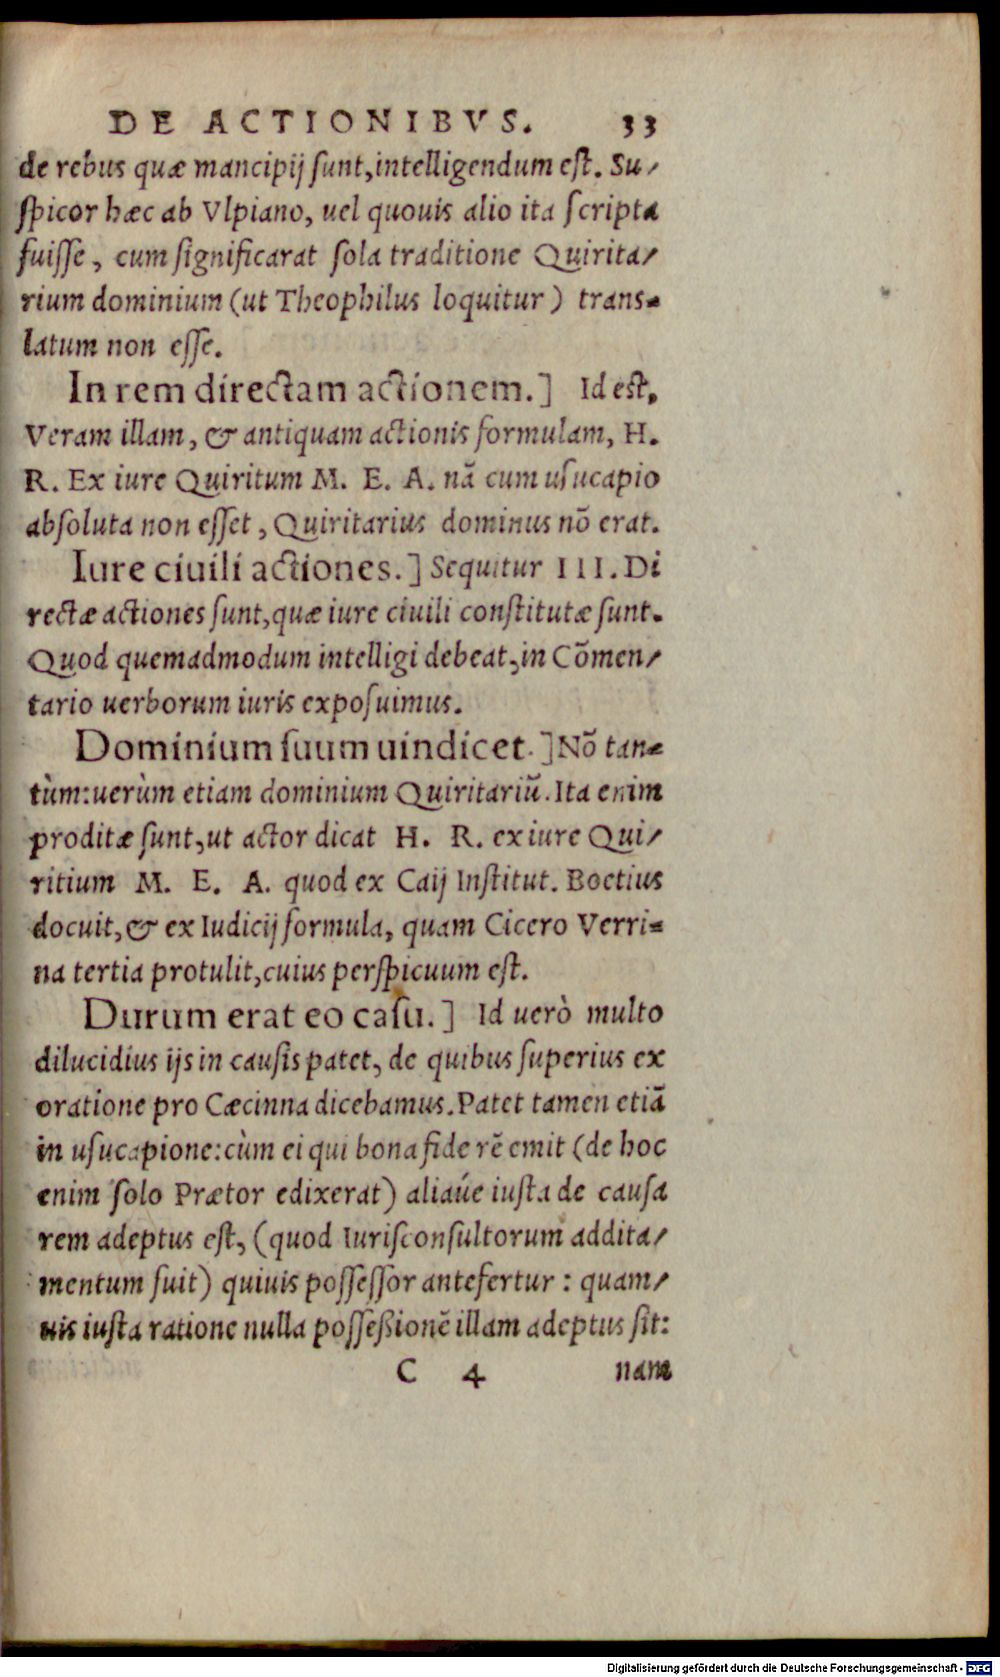 DE ACTIONIBVS. 33
de rebus quæ mancipij ſunt,intelligendum eſt. Su/
ſpicor hæc ab Vlpiano, uel quouis alio ita ſcripta
fuiſſe, cum ſignificarat ſola traditione Quirita/
rium dominium (ut Theophilus loquitur) trans-
latum non eſſe.
In rem directam actionem.] Id eſt,
Veram illam, & antiquam actionis formulam, H.
R. Ex iure Quiritum M. E. A. nã cum uſucapio
abſoluta non eſſet, Quiritarius dominus nõ erat.
Iure ciuili actiones.] Sequitur III. Di
rectæ actiones ſunt,quæ iure ciuili conſtitutæ ſunt.
Quod quemadmodum intelligi debeat,in Cõmen/
tario uerborum iuris expoſuimus.
Dominium ſuum uindicet.] Nõ tan-
tùm:uerùm etiam dominium Quiritariũ. Ita enim
proditæ ſunt,ut actor dicat H. R. ex iure Qui/
ritium M. E. A. quod ex Caij Inſtitut. Boetius
docuit,& ex Iudicij formula, quam Cicero Verri-
na tertia protulit,cuius perſpicuum eſt.
Durum erat eo caſu.] Id uerò multo
dilucidius ijs in cauſis patet, de quibus ſuperius ex
oratione pro Cæcinna dicebamus. Patet tamen etiã
in uſucapione:cùm ei qui bona fide rẽ emit (de hoc
enim ſolo Prætor edixerat) aliaúe iuſta de cauſa
rem adeptus eſt, (quod Iuriſconſultorum addita/
mentum fuit) quiuis poſſeſſor antefertur: quam/
uis iuſta ratione nulla poſſeßionẽ illam adeptus ſit:
C 4 nam
Digitalisierung gefördert durch die Deutsche Forschungsgemeinschaft - DFG